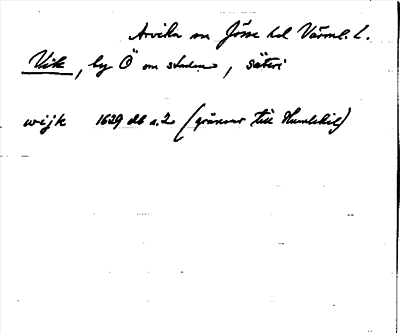 Arvika sn Jösse hd Värml. l.
Vik, by Ö om staden, säteri
wijk 1629 db s. 2 (gränsar till Humlekil)